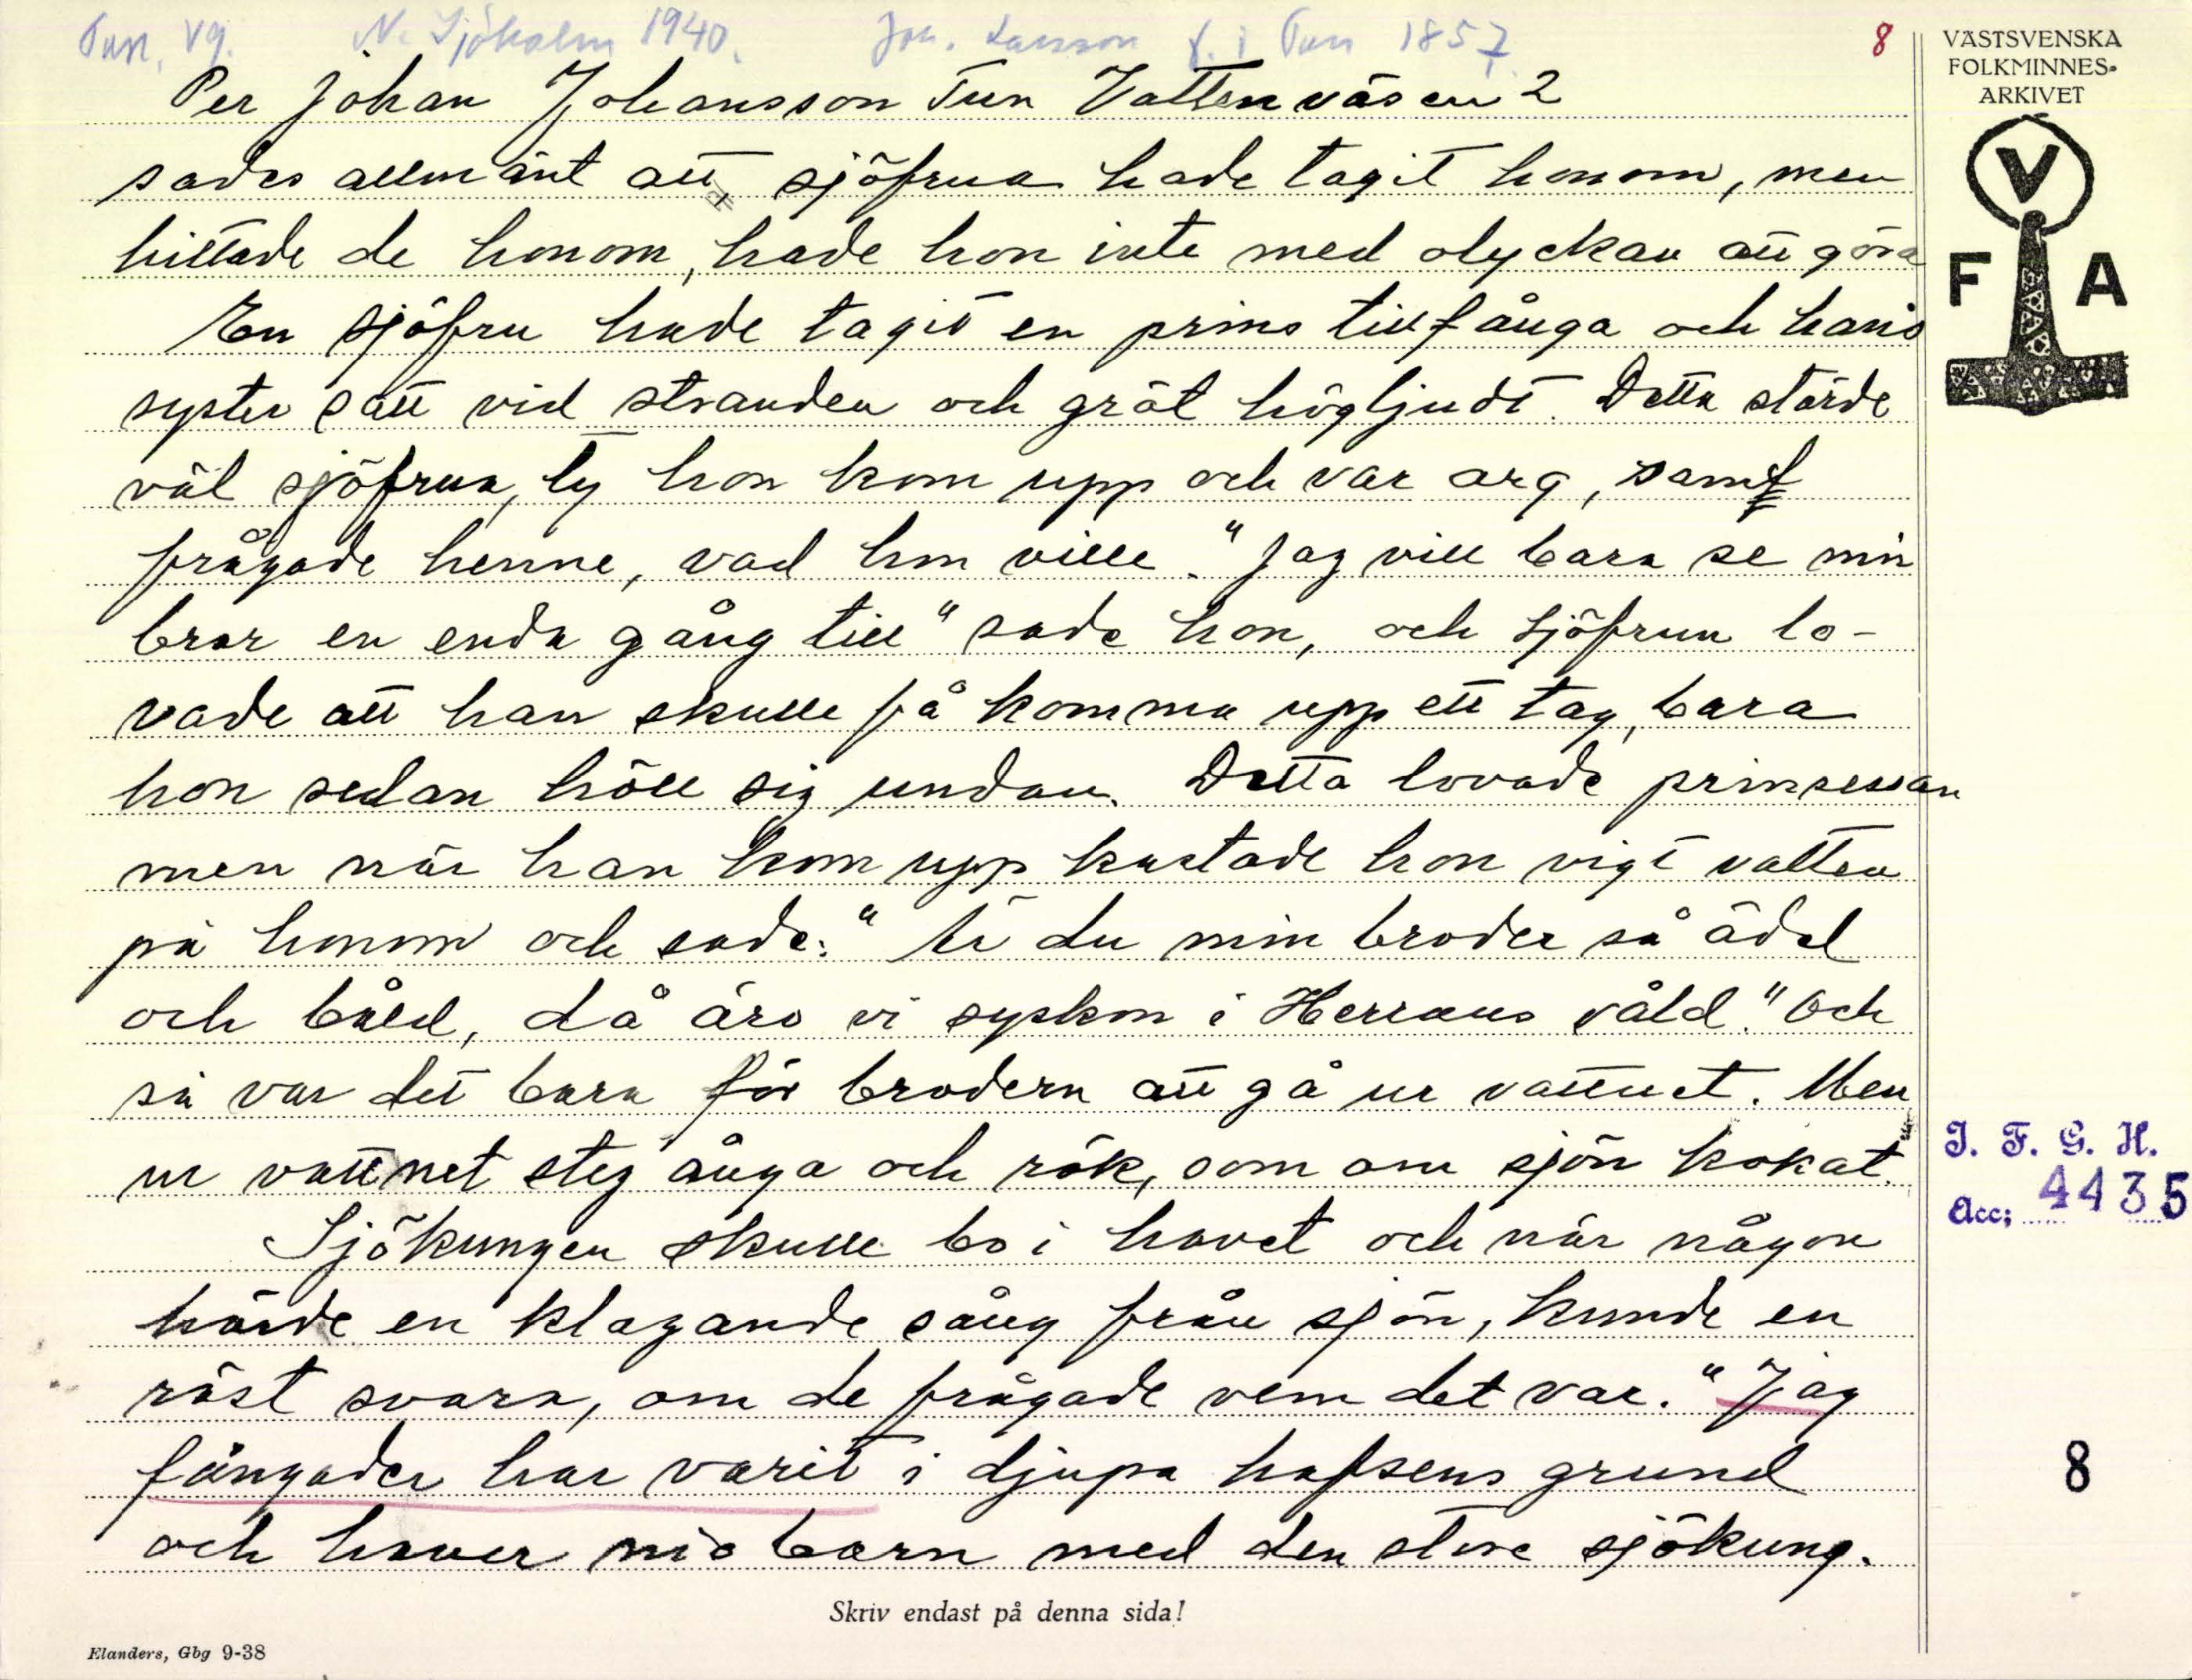 Tun, Vg. N. Sjöholm 1940. Joh. Larsson f. i Tun 1857. 8
VÄSTSVENSKA
FOLKMINNES-
ARKIVET
V
F A
Per Johan Johansson Tun Vattenväsen 2
sades allmänt att sjöfrua hade tagit honom, men
hittade de honom, hade hon inte med olyckan att göra
En sjöfru hade tagit en prins tillfånga och hans
syster satt vid stranden och grät högljudt. Detta störde
väl sjöfrun, ty hon kom upp och var arg, samt
frågade henne, vad hon ville. "Jag vill bara se min
bror en enda gång till" sade hon, och sjöfrun lo-
vade att han skulle få komma upp ett tag, bara
hon sedan höll sig undan. Detta lovade prinsessan
men när han kom upp kastade hon vigt vatten
på honom och sade: "Är du min broder så ädel
och båld, då äro vi syskon i Herrans våld." Och
så var det bara för brodern att gå ur vattnet. Men
ur vattnet steg ånga och rök, som om sjön kokat.
Sjökungen skulle bo i havet och när någon
hörde en klagande sång från sjön, kunde en
röst svara, om de frågade vem det var. "Jag
fångader har varit i djupa hafsens grund
och haver nio barn med den store sjökung.
I. F. G. H.
Acc; 4435
8
Skriv endast på denna sida!
Elanders, Gbg 9-38